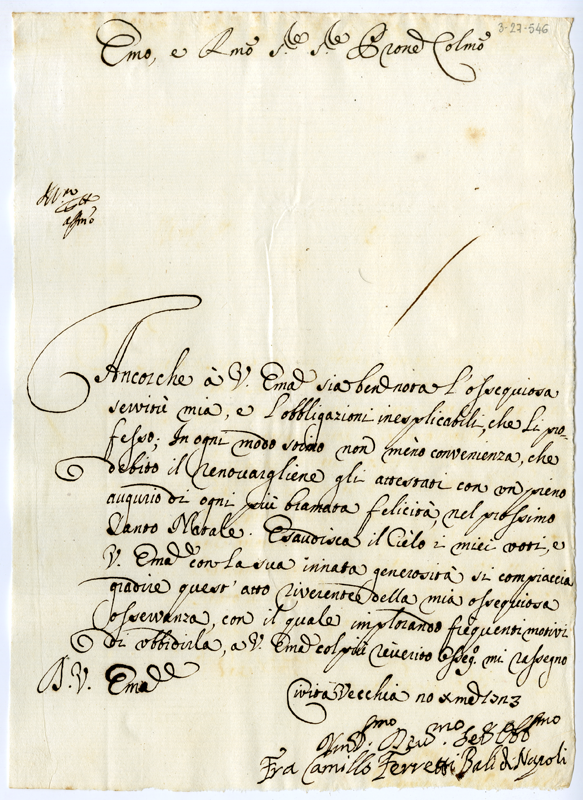 3-27-546
Emo, e Rmo Sre Sre Prone Colmo
Ancorche à V. Ema sia ben nota l'ossequiosa
servitù mia, e l'obbligazioni inesplicabili, che li pro-
fesso; In ogni modo stimo non meno convenienza, che
debito il renovargliene gli attestati con un pieno
augurio di ogni più bramata felicità, nel prossimo
Santo Natale. Esaudisca il Cielo i miei voti, e
V. Ema con la sua innata generosità si compiaccia
gradire quest'atto riverente della mia ossequiosa
osservanza, con il quale implorando frequenti motivi
di obbidirla, a V. Ema col più riverito osseqo mi rassegno
D. V. Ema
Civita Vecchia
Fra Camillo Ferretti Bali di Napoli